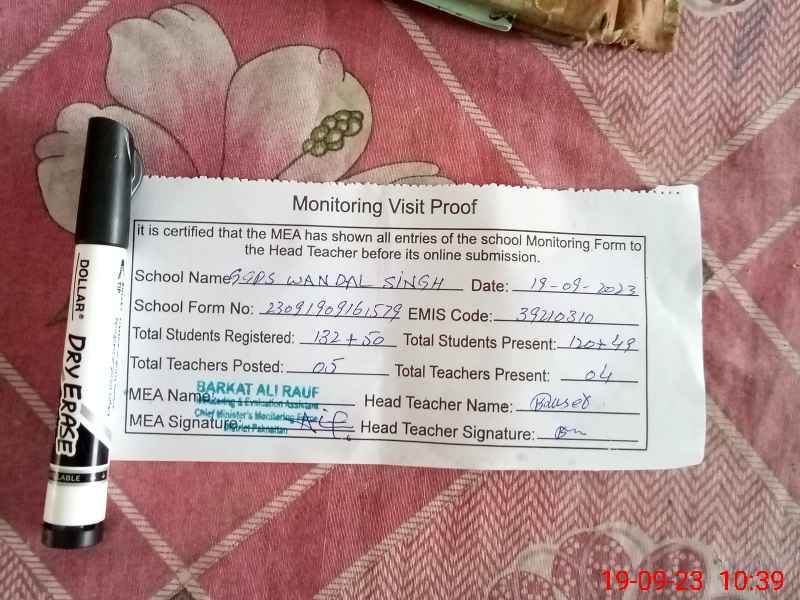 Monitoring Visit Proof
it is certified that the MEA has shown all entries of the school Monitoring Form to
the Head Teacher before its online submission.
School Name GGPS WANDAL SINGH Date: 19-09-2023
School Form No: 23091909161529 EMIS Code: 39210310
Total Students Registered: 132+50 Total Students Present: 120+49
Total Teachers Posted: 05 Total Teachers Present: 04
MEA Name: BARKAT ALI RAUF Head Teacher Name:
Monitoring & Evaluation Assistant
Chief Minister's Monitoring Force
District Pakpattan
MEA Signature: Head Teacher Signature:
DOLLAR®
DRY ERASE
19-09-23 10:39